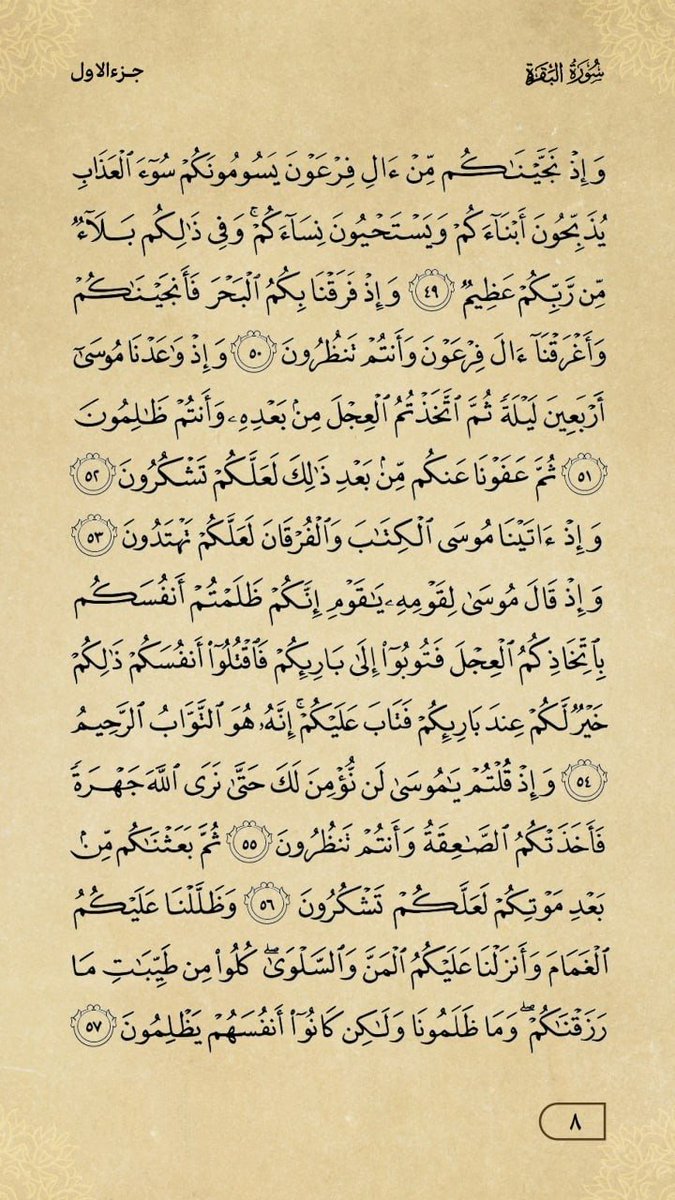 سُورَةُ البَقَرَةِ
جزء الاول
وَإِذۡ نَجَّيۡنَٰكُم مِّنۡ ءَالِ فِرۡعَوۡنَ يَسُومُونَكُمۡ سُوٓءَ ٱلۡعَذَابِ
يُذَبِّحُونَ أَبۡنَآءَكُمۡ وَيَسۡتَحۡيُونَ نِسَآءَكُمۡۚ وَفِي ذَٰلِكُم بَلَآءٞ
مِّن رَّبِّكُمۡ عَظِيمٞ ٤٩ وَإِذۡ فَرَقۡنَا بِكُمُ ٱلۡبَحۡرَ فَأَنجَيۡنَٰكُمۡ
وَأَغۡرَقۡنَآ ءَالَ فِرۡعَوۡنَ وَأَنتُمۡ تَنظُرُونَ ٥٠ وَإِذۡ وَٰعَدۡنَا مُوسَىٰٓ
أَرۡبَعِينَ لَيۡلَةٗ ثُمَّ ٱتَّخَذۡتُمُ ٱلۡعِجۡلَ مِنۢ بَعۡدِهِۦ وَأَنتُمۡ ظَٰلِمُونَ
٥١ ثُمَّ عَفَوۡنَا عَنكُم مِّنۢ بَعۡدِ ذَٰلِكَ لَعَلَّكُمۡ تَشۡكُرُونَ ٥٢
وَإِذۡ ءَاتَيۡنَا مُوسَى ٱلۡكِتَٰبَ وَٱلۡفُرۡقَانَ لَعَلَّكُمۡ تَهۡتَدُونَ ٥٣
وَإِذۡ قَالَ مُوسَىٰ لِقَوۡمِهِۦ يَٰقَوۡمِ إِنَّكُمۡ ظَلَمۡتُمۡ أَنفُسَكُم
بِٱتِّخَاذِكُمُ ٱلۡعِجۡلَ فَتُوبُوٓاْ إِلَىٰ بَارِئِكُمۡ فَٱقۡتُلُوٓاْ أَنفُسَكُمۡ ذَٰلِكُمۡ
خَيۡرٞ لَّكُمۡ عِندَ بَارِئِكُمۡ فَتَابَ عَلَيۡكُمۡۚ إِنَّهُۥ هُوَ ٱلتَّوَّابُ ٱلرَّحِيمُ
٥٤ وَإِذۡ قُلۡتُمۡ يَٰمُوسَىٰ لَن نُّؤۡمِنَ لَكَ حَتَّىٰ نَرَى ٱللَّهَ جَهۡرَةٗ
فَأَخَذَتۡكُمُ ٱلصَّٰعِقَةُ وَأَنتُمۡ تَنظُرُونَ ٥٥ ثُمَّ بَعَثۡنَٰكُم مِّنۢ
بَعۡدِ مَوۡتِكُمۡ لَعَلَّكُمۡ تَشۡكُرُونَ ٥٦ وَظَلَّلۡنَا عَلَيۡكُمُ
ٱلۡغَمَامَ وَأَنزَلۡنَا عَلَيۡكُمُ ٱلۡمَنَّ وَٱلسَّلۡوَىٰۖ كُلُواْ مِن طَيِّبَٰتِ مَا
رَزَقۡنَٰكُمۡۖ وَمَا ظَلَمُونَا وَلَٰكِن كَانُوٓاْ أَنفُسَهُمۡ يَظۡلِمُونَ ٥٧
٨